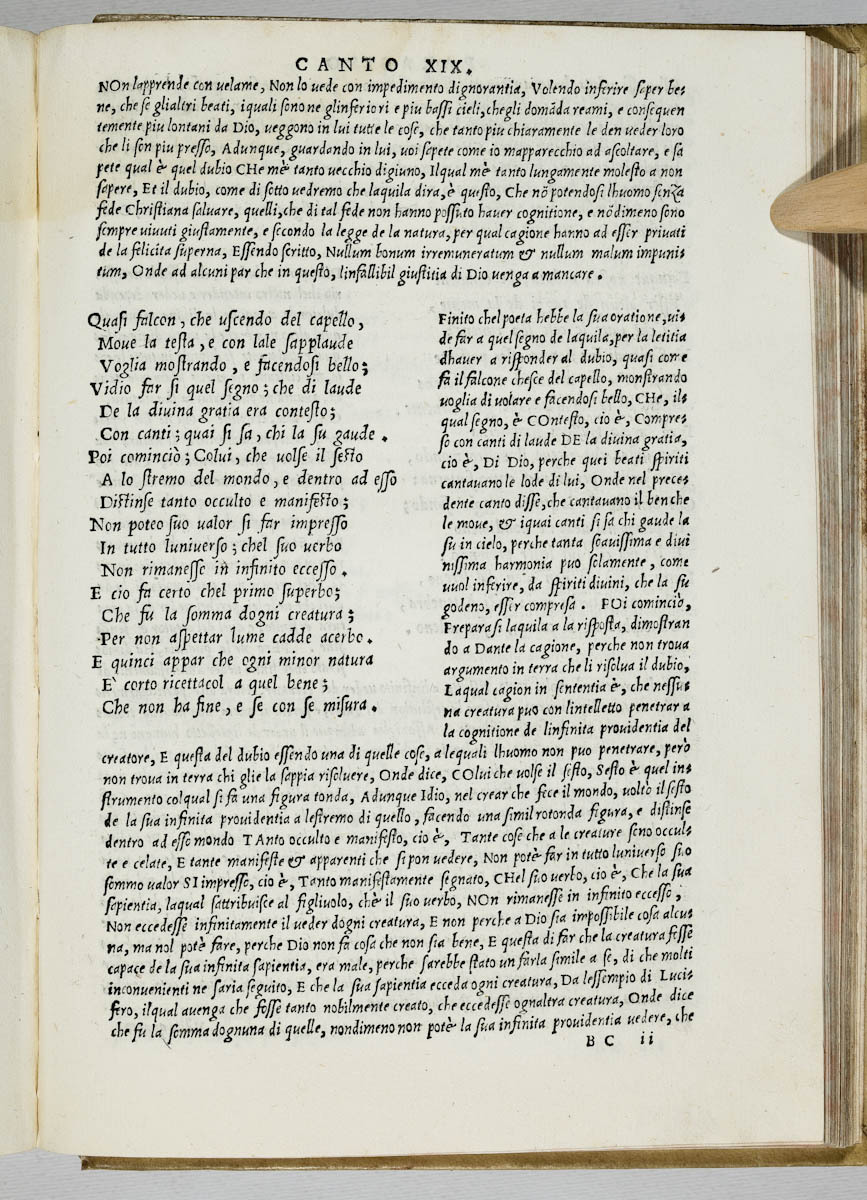 CANTO XIX.
NOn lapprende con velame, Non lo vede con impedimento dignorantia, Volendo inferire seper be=
ne, che se glialtri beati, iquali sono ne glinferiori e piu bassi cieli, chegli domāda reami, e consequen
temente piu lontani da Dio, veggono in lui tutte le cose, che tanto piu chiaramente le den veder loro
che li son piu presso, Adunque, guardando in lui, voi sepete come io mapparecchio ad ascoltare, e sa
pete qual è quel dubio CHe m'è tanto vecchio digiuno, Ilqual m'è tanto lungamente molesto a non
sapere, Et il dubio, come di sotto vedremo che laquila dira, è questo, Che nō potendosi lhuomo senza
fede Christiana saluare, quelli, che di tal fede non hanno possuto hauer cognitione, e nōdimeno sono
sempre viuuti giustamente, e secondo la legge de la natura, per qual cagione hanno ad esser priuati
de la felicita superna, Essendo scritto, Nullum bonum irremuneratum & nullum malum impuni=
tum, Onde ad alcuni par che in questo, linfallibil giustitia di Dio venga a mancare.
Quasi falcon, che uscendo del capello,
Moue la testa, e con lale sapplaude
Voglia mostrando, e facendosi bello;
Vidio far si quel segno; che di laude
De la diuina gratia era contesto;
Con canti; quai si sa, chi la su gaude.
Poi cominciò; Colui, che volse il sesto
A lo stremo del mondo, e dentro ad esso
Distinse tanto occulto e manifesto;
Non poteo suo valor si far impresso
In tutto luniuerso; chel suo verbo
Non rimanesse in infinito eccesso.
E cio fa certo chel primo superbo;
Che fu la somma dogni creatura;
Per non aspettar lume cadde acerbo.
E quinci appar che ogni minor natura
E' corto ricettacol a quel bene;
Che non ha fine, e se con se misura.
Finito chel poeta hebbe la sua oratione, ui=
de far a quel segno de laquila, per la letitia
dhauer a risponder al dubio, quasi come
fa il falcone chesce del capello, monstrando
voglia di volare e facendosi bello, CHe, ils
qual segno, è COntesto, cio è, Compre=
so con canti di laude DE la diuina gratia,
cio è, Di Dio, perche quei beati spiriti
cantauano le lode di lui, Onde nel prece=
dente canto disse, che cantauano il ben che
le moue, & iquai canti si sa chi gaude la
su in cielo, perche tanta soauissima e diui
nissima harmonia puo solamente, come
vuol inferire, da spiriti diuini, che la su
godeno, esser compresa. POi cominciò,
Preparasi laquila a la risposta, dimostran
do a Dante la cagione, perche non troua
argumento in terra che li risolua il dubio,
Laqual cagion in sententia è, che nessu=
na creatura puo con lintelletto penetrar a
la cognitione de linfinita prouidentia del
creatore, E questa del dubio essendo una di quelle cose, a lequali lhuomo non puo penetrare, però
non troua in terra chi glie la sappia risoluere, Onde dice, COlui che volse il sesto, Sesto è quel in=
strumento colqual si fa una figura tonda, Adunque Idio, nel crear che fece il mondo, voltò il sesto
de la sua infinita prouidentia a lestremo di quello, facendo una simil rotonda figura, e distinse
dentro ad esso mondo TAnto occulto e manifesto, cio è, Tante cose che a le creature sono occul=
te e celate, E tante manifeste & apparenti che si pon vedere, Non potè far in tutto luniuerso suo
sommo valor SI impresso, cio è, Tanto manifestamente segnato, CHel suo verbo, cio è, Che la sua
sapientia, laqual sattribuisce al figliuolo, ch'è il suo verbo, NOn rimanesse in infinito eccesso,
Non eccedesse infinitamente il veder dogni creatura, E non perche a Dio sia impossibile cosa alcu=
na, ma nol potè fare, perche Dio non fa cosa che non sia bene, E questa di far che la creatura fosse
capace de la sua infinita sapientia, era male, perche sarebbe stato un farla simile a se, di che molti
inconuenienti ne saria seguito, E che la sua sapientia ecceda ogni creatura, Da lessempio di Luci=
fero, ilqual auenga che fosse tanto nobilmente creato, che eccedesse ognaltra creatura, Onde dice
che fu la somma dognuna di quelle, nondimeno non potè la sua infinita prouidentia vedere, che
BC ii